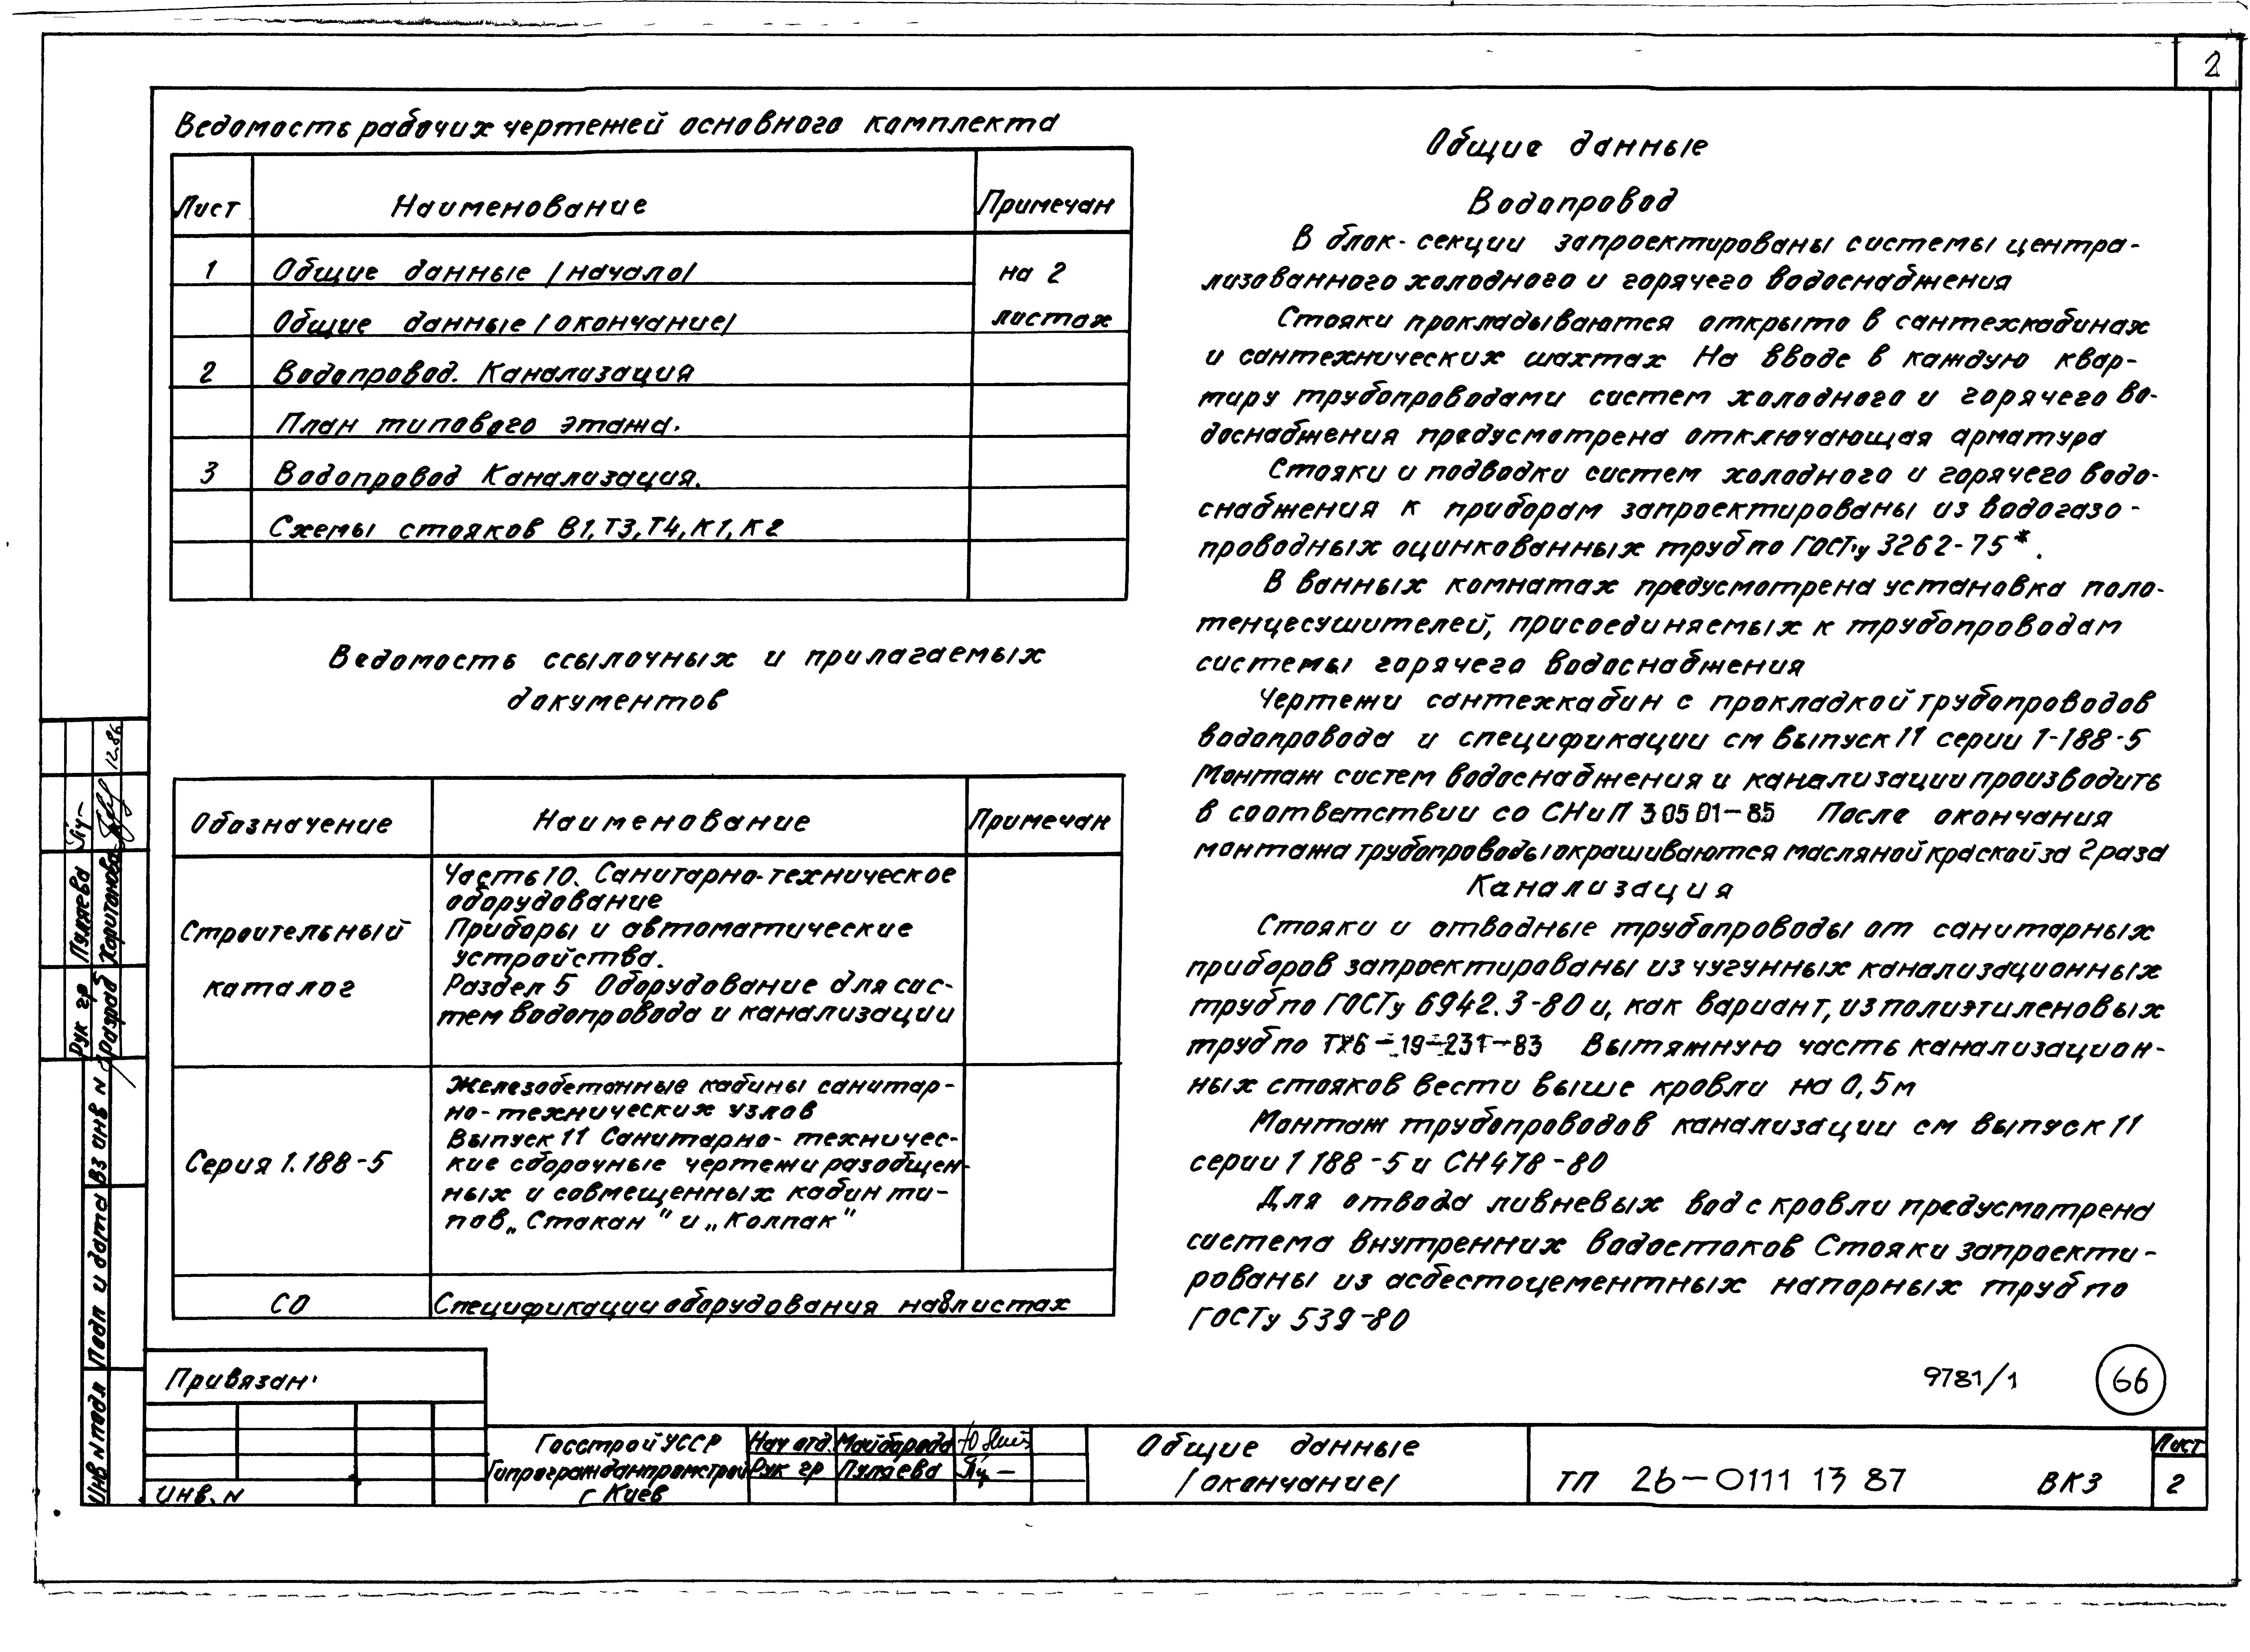 2
Ведомость рабочих чертежей основного комплекта
Лист Наименование Примечан
1 Общие данные /начало/ на 2
Общие данные /окончание/ листах
2 Водопровод. Канализация
План типового этажа.
3 Водопровод Канализация.
Схемы стояков В1, Т3, Т4, К1, К2
Ведомость ссылочных и прилагаемых
документов
Обозначение Наименование Примечан
Строительный
каталог
Часть 10. Санитарно-техническое
оборудование
Приборы и автоматические
устройства.
Раздел 5 Оборудование для сис-
тем водопровода и канализации
Серия 1.188-5
Железобетонные кабины санитар-
но-технических узлов
Выпуск 11 Санитарно-техничес-
кие сборочные чертежи разобщен-
ных и совмещенных кабин ти-
пов „Стакан" и „Колпак"
СО Спецификации оборудования на 8 листах
Общие данные
Водопровод
В блок-секции запроектированы системы центра-
лизованного холодного и горячего водоснабжения
Стояки прокладываются открыто в сантехкабинах
и сантехнических шахтах На вводе в каждую квар-
тиру трубопроводами систем холодного и горячего во-
доснабжения предусмотрена отключающая арматура
Стояки и подводки систем холодного и горячего водо-
снабжения к приборам запроектированы из водогазо-
проводных оцинкованных труб по ГОСТу 3262-75*.
В ванных комнатах предусмотрена установка поло-
тенцесушителей, присоединяемых к трубопроводам
системы горячего водоснабжения
Чертежи сантехкабин с прокладкой трубопроводов
водопровода и спецификации см выпуск 11 серии 1-188-5
Монтаж систем водоснабжения и канализации производить
в соответствии со СНиП 3 05 01-85 После окончания
монтажа трубопроводы окрашиваются масляной краской за 2 раза
Канализация
Стояки и отводные трубопроводы от санитарных
приборов запроектированы из чугунных канализационных
труб по ГОСТу 6942.3-80 и, как вариант, из полиэтиленовых
труб по 6-19-231-83 Вытяжную часть канализацион-
ных стояков вести выше кровли на 0,5м
Монтаж трубопроводов канализации см выпуск 11
серии 1 188-5 и СН478-80
Для отвода ливневых вод с кровли предусмотрена
система внутренних водостоков Стояки запроекти-
рованы из асбестоцементных напорных труб по
ГОСТу 539-80
9781/1 66
Рук гр Пуляева
Разраб Харитонова 12.86
Вз инв N
Подп и дата
Инв N подл
Привязан
Инв. N
Госстрой УССР
Гипрогражданпромстрой
г Киев
Нач отд. Майборода
Рук гр Пуляева
Общие данные
/окончание/
ТП 26-0111 13 87 ВК3
Лист
2